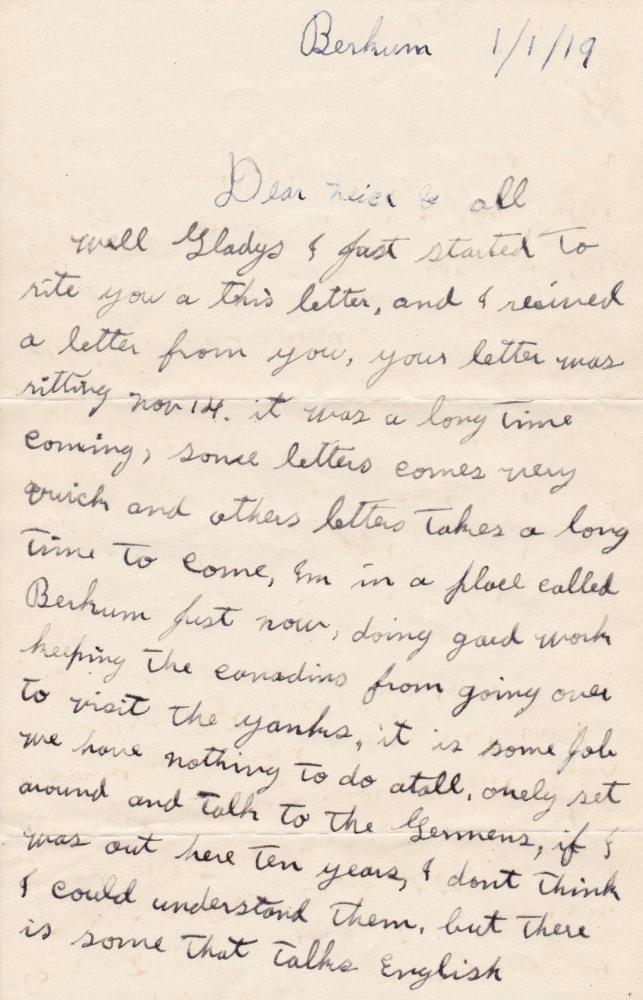 Berkum 1/1/19
Dear neice & all
well Gladys I just started to
rite you a this letter, and I recived
a letter from you, your letter was
ritting nov 14. it was a long time
coming, some letters comes very
quick and others letters takes a long
time to come, Im in a place called
Berkum just now, doing gaurd work
keeping the canadins from going over
to visit the yanks, it is some job
we have nothing to do atall, onely set
around and talk to the Germens, if I
was out here ten years, I dont think
I could understand them, but there
is some that talks English